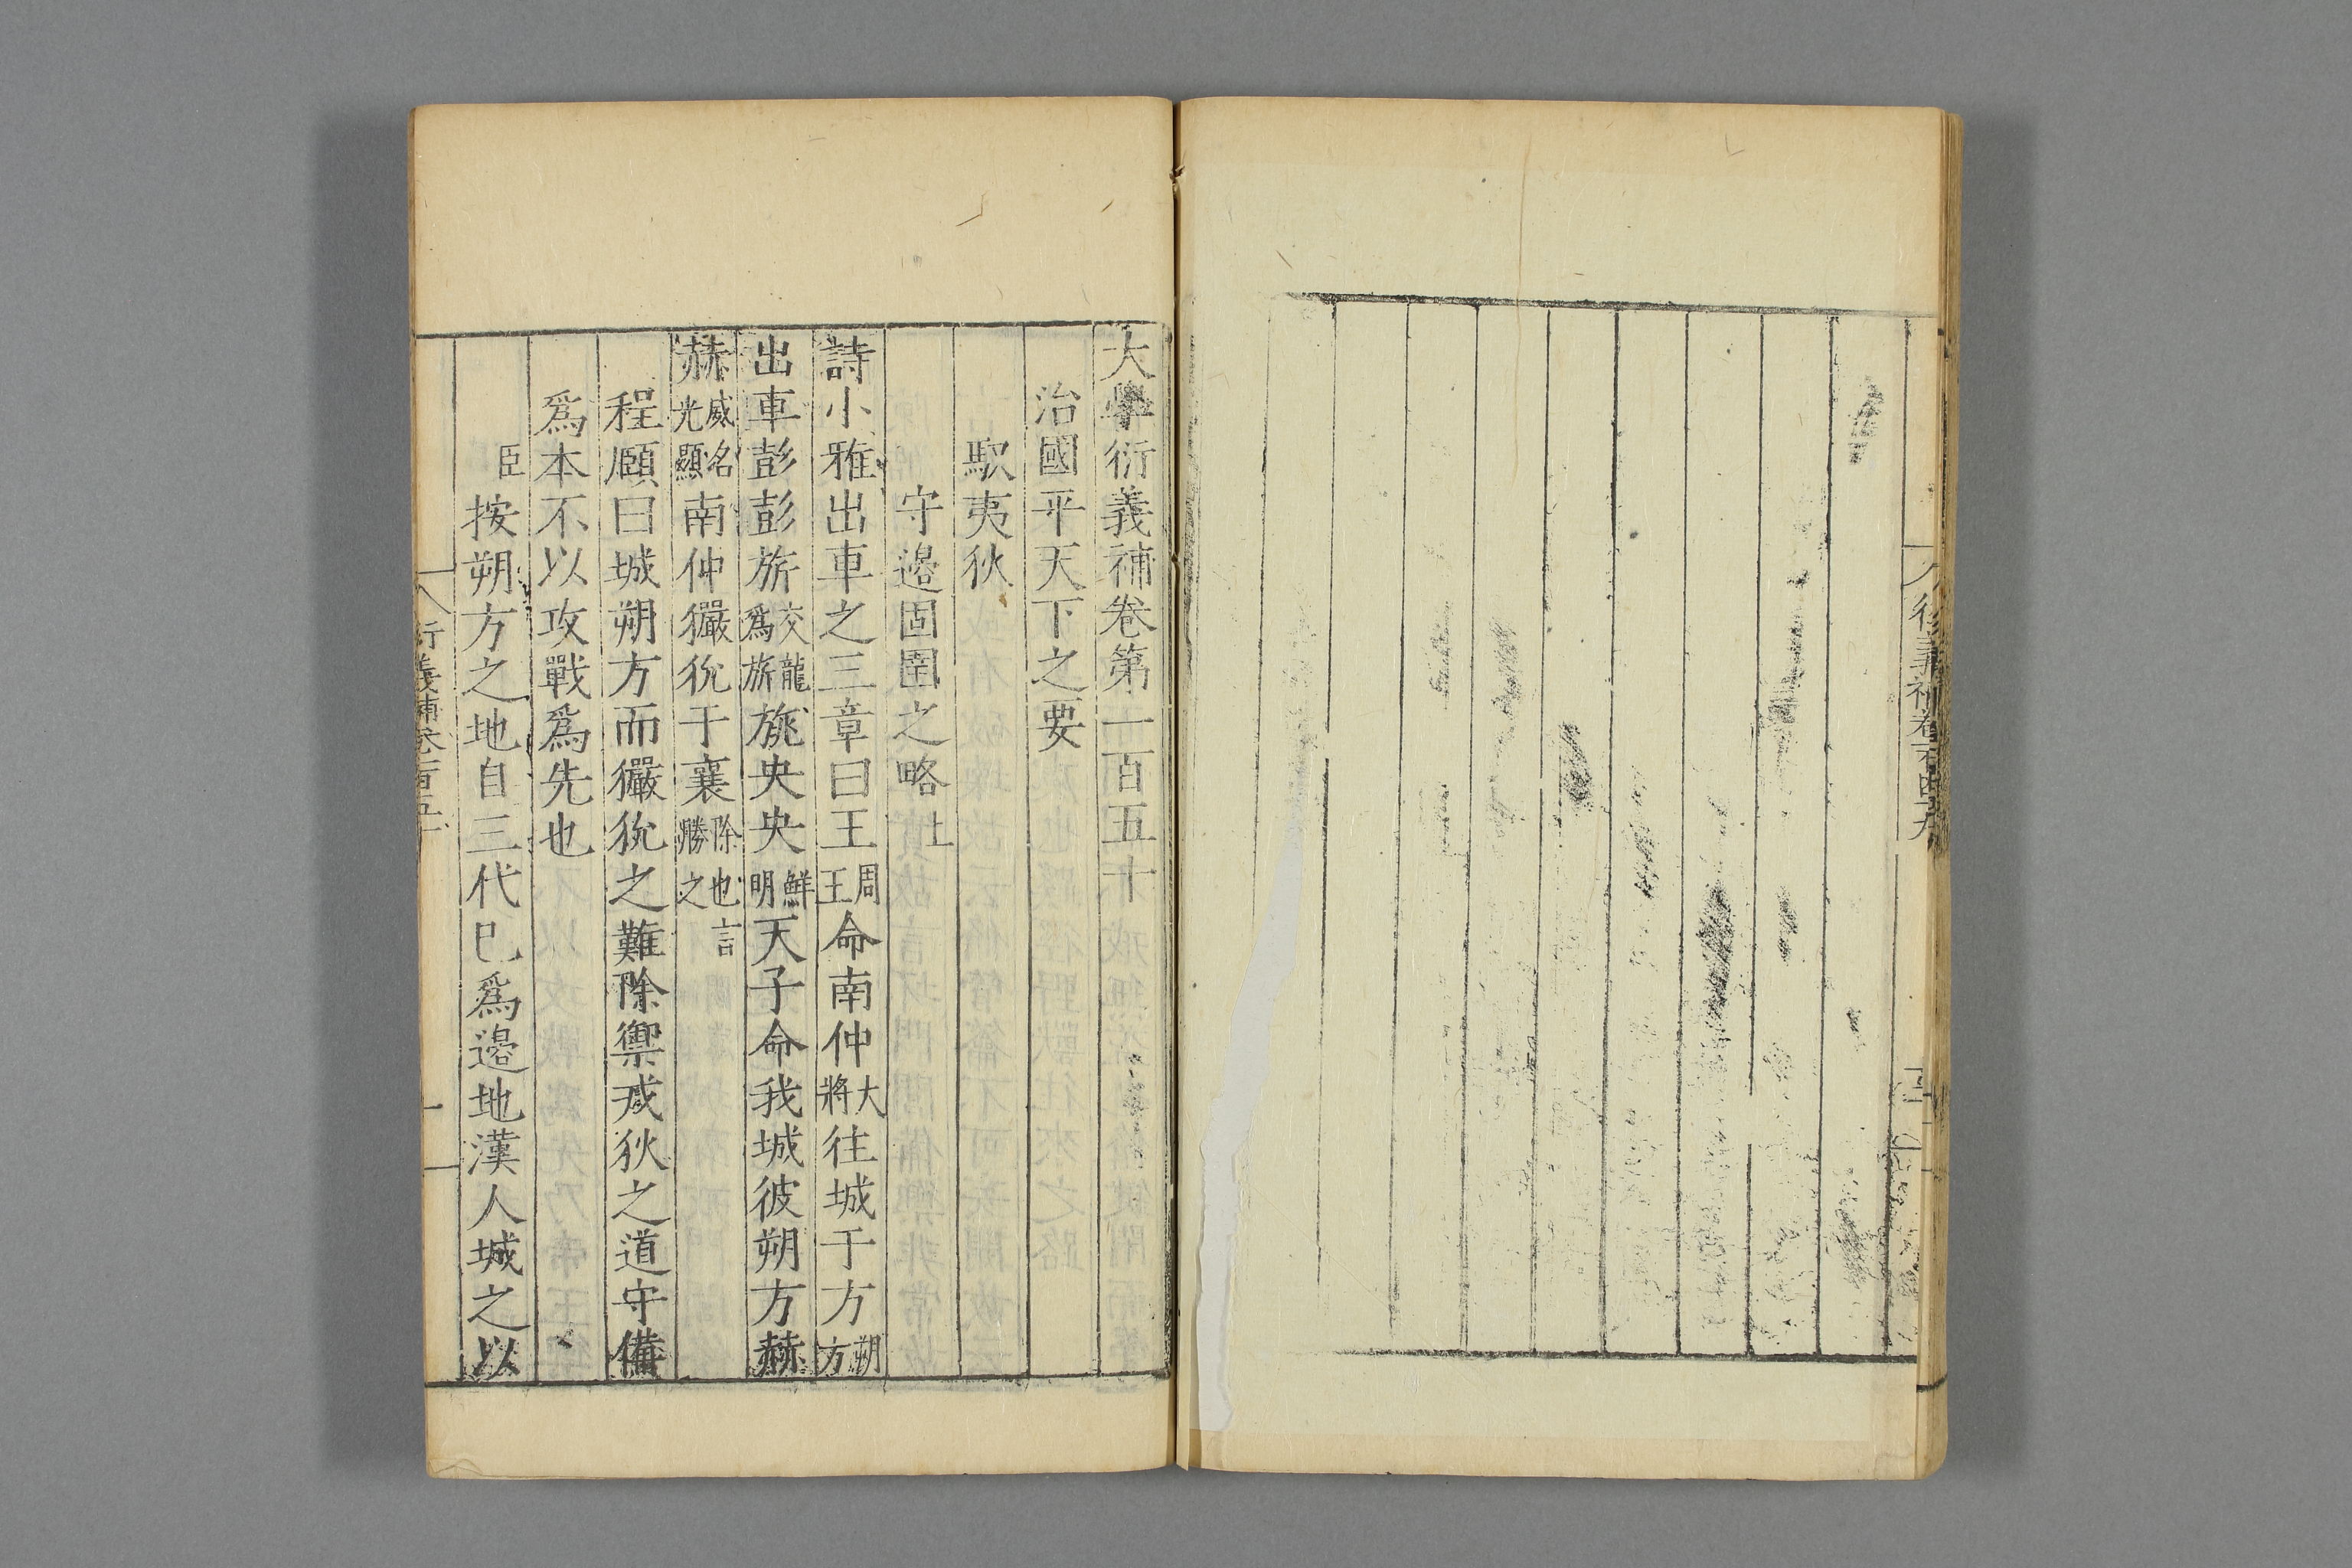 大學衍義補卷第一百五十
治國平天下之要
馭夷狄
守邉固圉之略上
詩小雅出車之三章曰王周王命南仲大將往城于方朔方
出車彭彭旂交龍爲旂旐央央鮮明天子命我城彼朔方赫
赫威名光顯南仲玁狁于襄除也言勝之
程頥曰城朔方而玁狁之難除禦戎狄之道守備
爲本不以攻戰爲先也
臣按朔方之地自三代巳爲邉地漢人城之以
衍義補卷一百五十